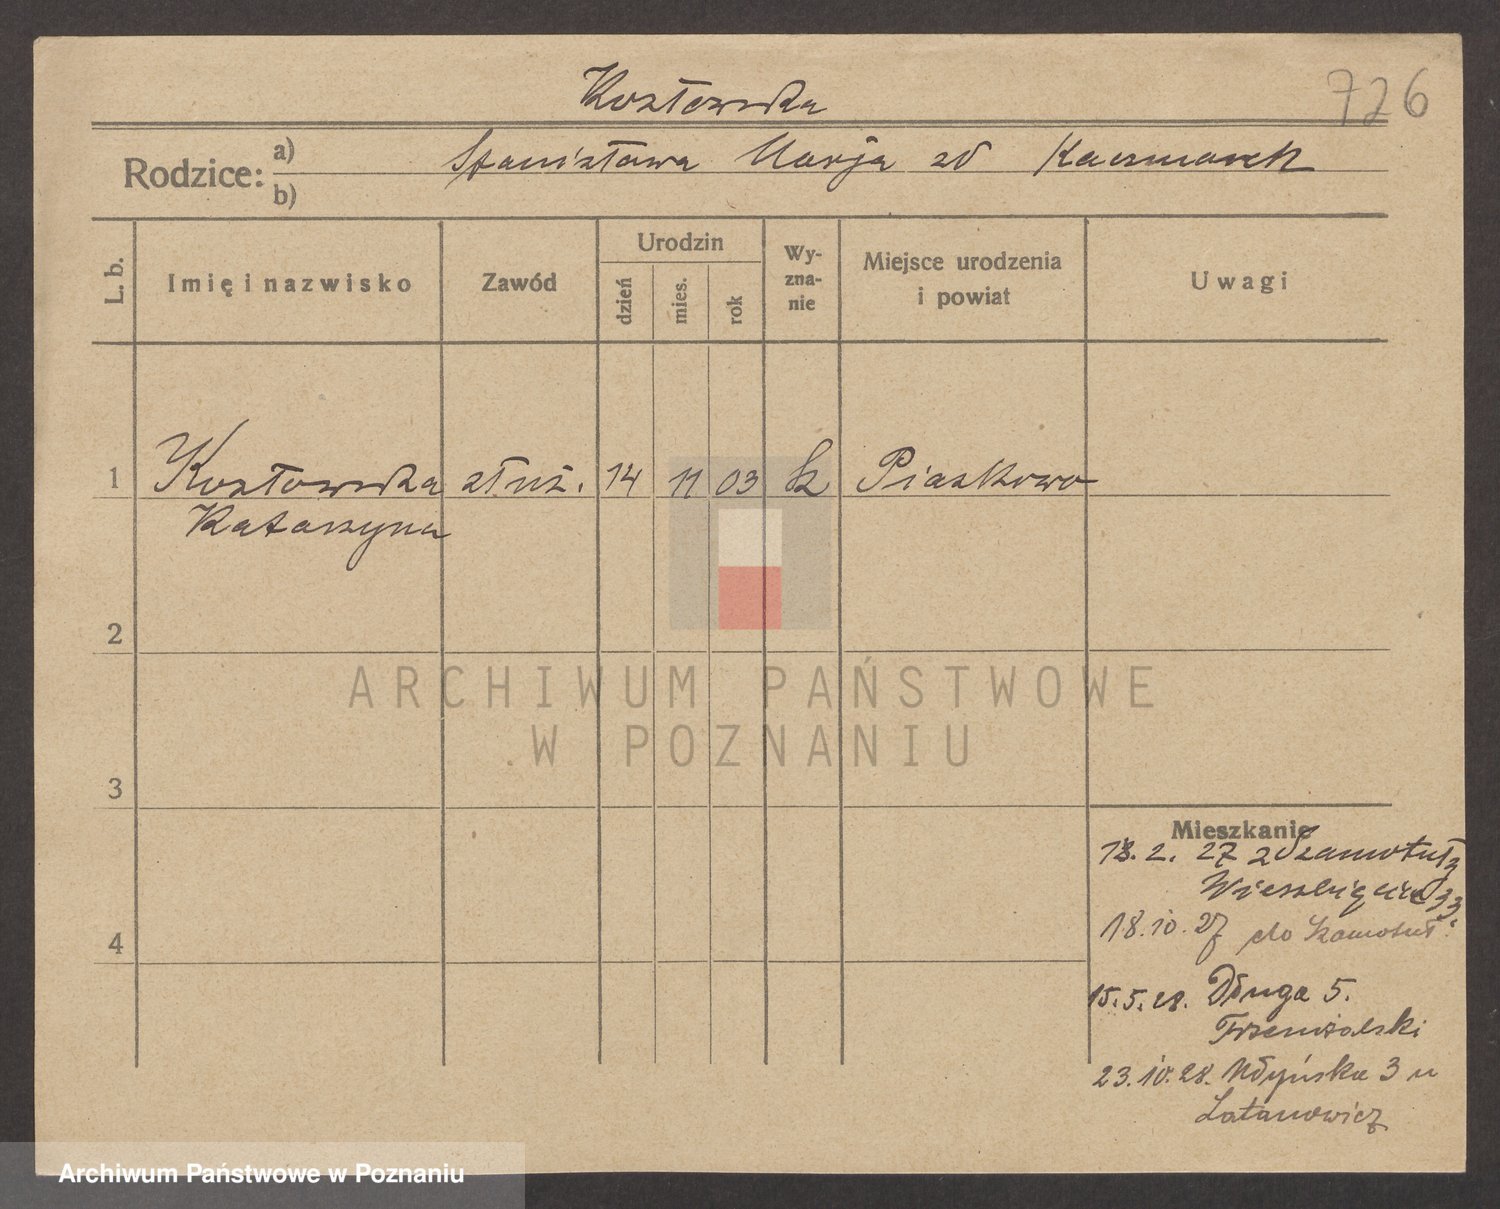 726
Kozłowska
Rodzice: a) Stanisława Marja zd Kaczmarek
b)
L. b.
Imię i nazwisko
Zawód
Urodzin
dzień
mies.
rok
Wy-
zna-
nie
Miejsce urodzenia
i powiat
Uwagi
1 Kozłowska służ. 14 11 03 k Piaskowo
Katarzyna
2
3
4
Mieszkanie
13. 2. 27 z Szamotuł
18.10.27 do Szamotuł
15.5.28. Długa 5.
23.10.28. Młyńska 3 u
Latanowicz
ARCHIWUM PAŃSTWOWE
W POZNANIU
Archiwum Państwowe w Poznaniu